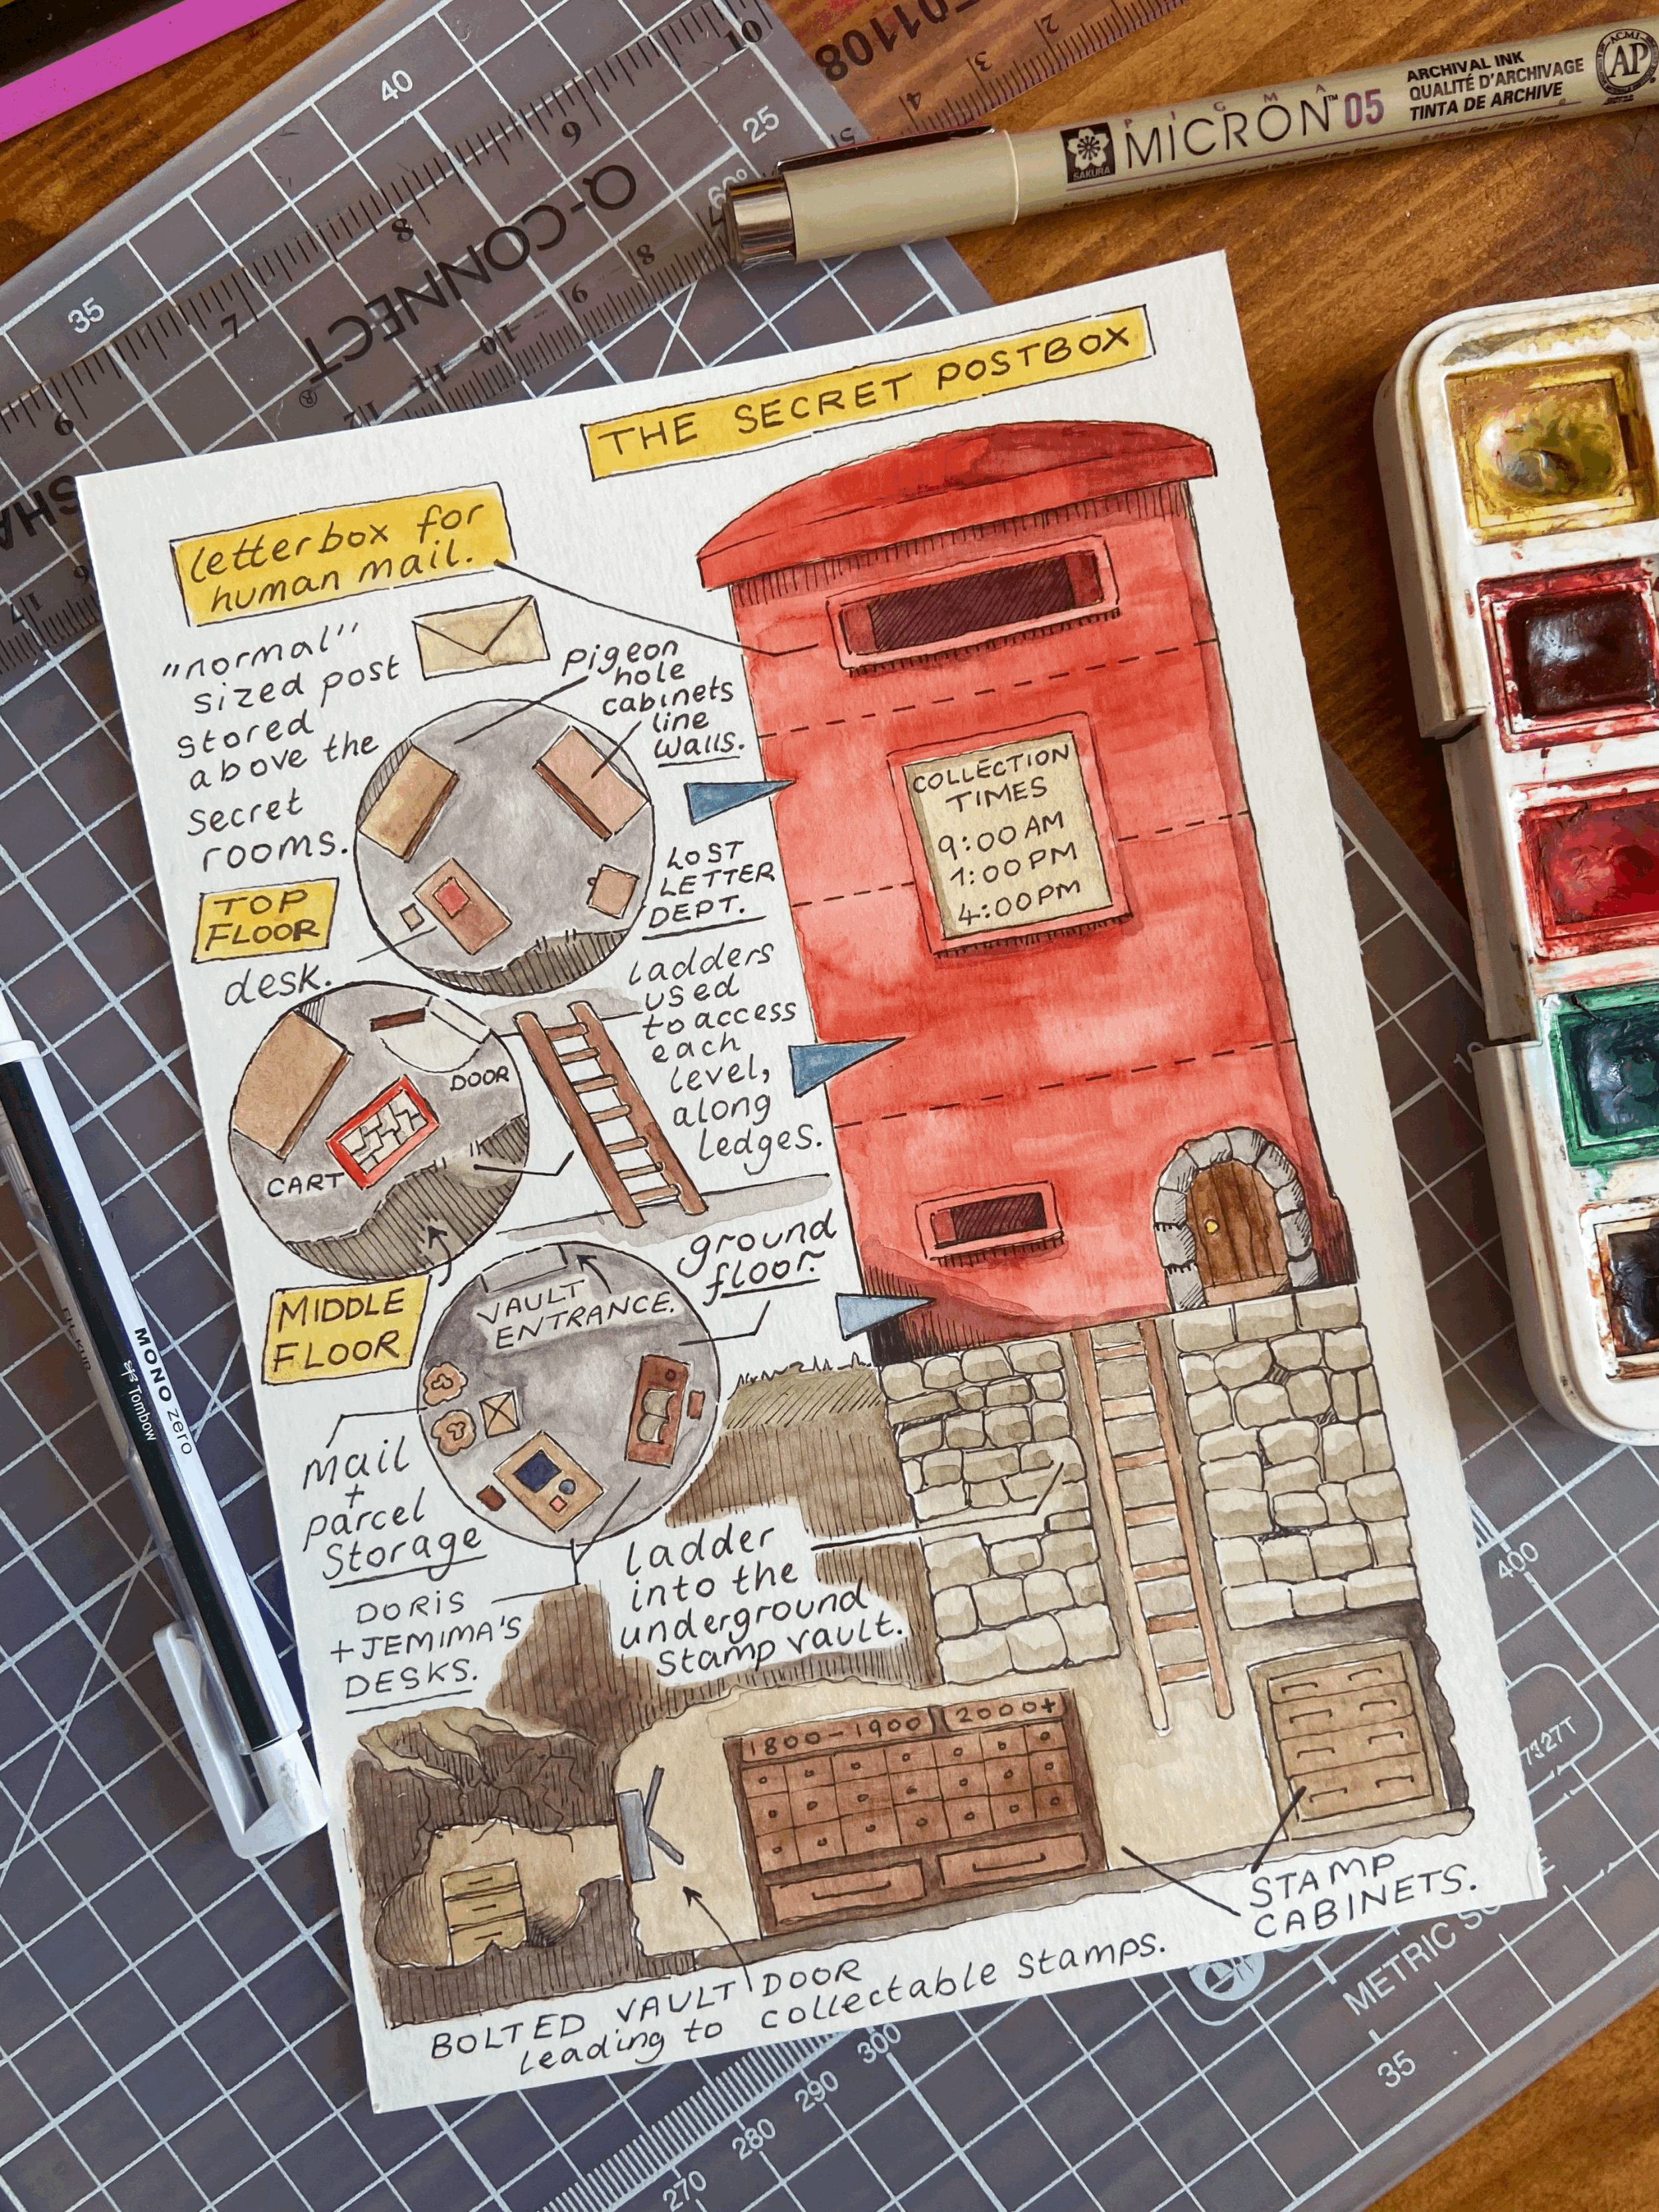 THE SECRET POSTBOX
letterbox for
human mail.
"normal"
sized post
stored
above the
secret
rooms.
pigeon
hole
cabinets
line
walls.
TOP
FLOOR
desk.
LOST
LETTER
DEPT.
ladders
used
to access
each
level,
along
ledges.
DOOR
CART
MIDDLE
FLOOR
ground
floor.
VAULT
ENTRANCE.
mail
+
parcel
storage
DORIS
+ JEMIMA'S
DESKS.
Ladder
into the
underground
stamp vault.
COLLECTION
TIMES
9:00 AM
1:00 PM
4:00 PM
1800-1900
2000+
STAMP
CABINETS.
BOLTED VAULT DOOR
leading to collectable stamps.
SAKURA
PIGMA
MICRON™ 05
ARCHIVAL INK
QUALITÉ D'ARCHIVAGE
TINTA DE ARCHIVE
ACMI
AP
Q-CONNECT®
01108
10
9
8
7
6
40
35
25
60°
8
9
10
11
12
2
3
4
5
MONO zero
Tombow
400
7327T
METRIC
35
300
290
280
270